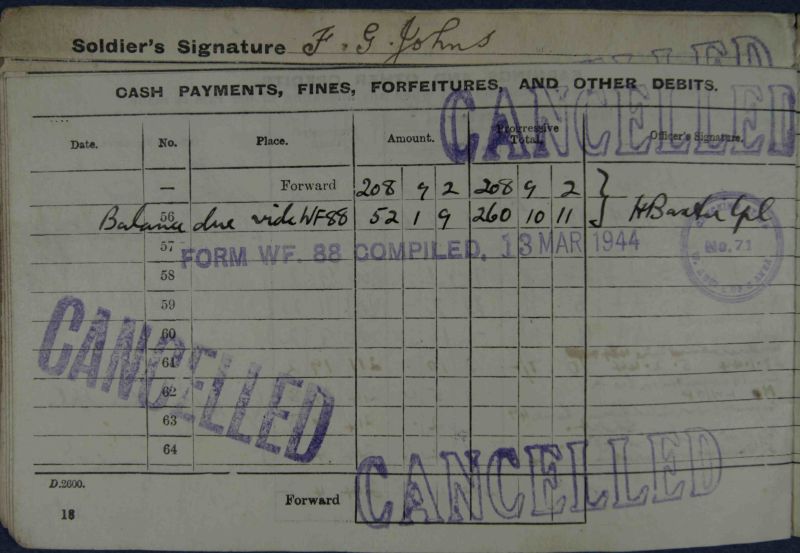 Soldier's Signature F. G. Johns
CASH PAYMENTS, FINES, FORFEITURES, AND OTHER DEBITS.
CANCELLED
Date. No. Place. Amount. Progressive Total. Officer's Signature.
— Forward 208 9 2 208 9 2
56 Balance due vide WF88 52 1 9 260 10 11 H Baxter Cpl
57 FORM WF. 88 COMPILED. 13 MAR 1944
No. 71
58
59
60
61
62
63
64
CANCELLED
Forward
CANCELLED
D.2600.
18